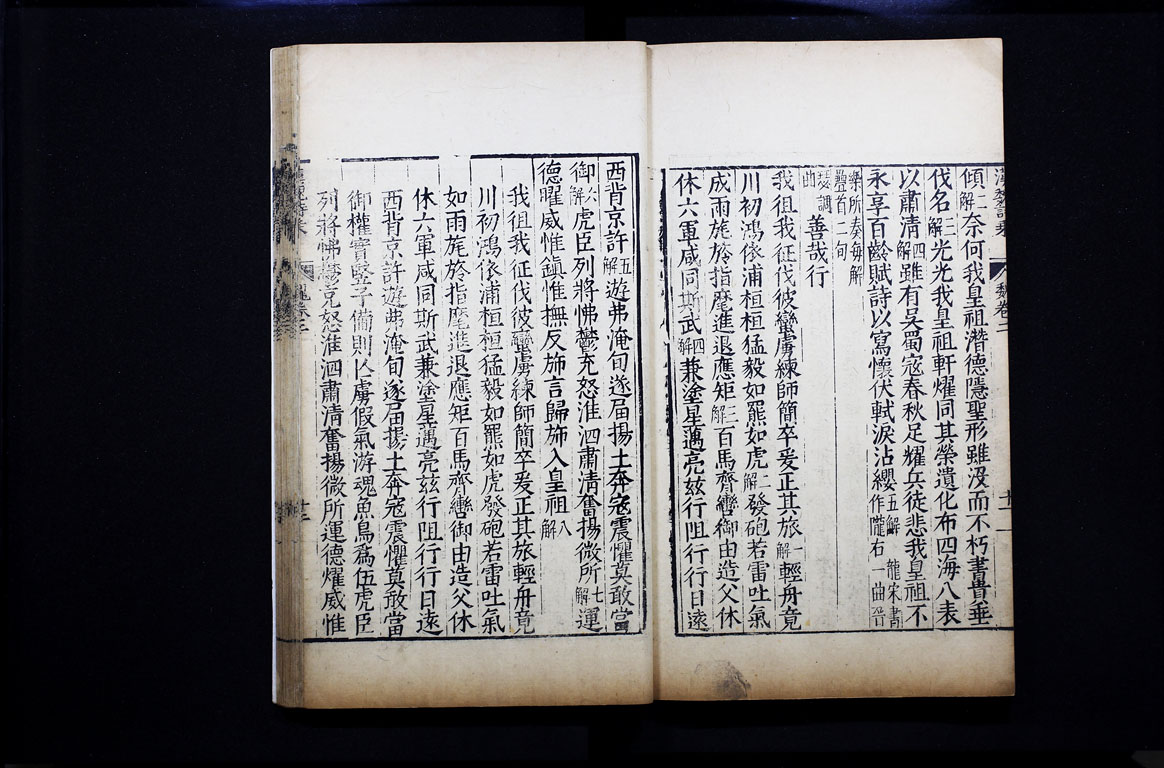 傾二解奈何我皇祖潛德隱聖形雖沒而不朽書貴垂
伐名三解光光我皇祖軒耀同其榮遺化布四海八表
以肅清四解雖有吳蜀寇春秋足耀兵徒悲我皇祖不
永享百齡賦詩以寫懷伏軾淚沾纓五解 龍宋書作隴右一曲晉
樂所奏每解疊首二句
善哉行瑟調曲
我徂我征伐彼蠻虜練師簡卒爰正其旅一解輕舟竟
川初鴻依浦桓桓猛毅如羆如虎二解發砲若雷吐氣
成雨旄旍指麾進退應矩三解百馬齊轡御由造父休
休六軍咸同斯武四解兼塗星邁亮茲行阻行行日遠
西背京許五解遊弗淹旬遂屆揚土奔寇震懼莫敢當
御六解虎臣列將怫鬱充怒淮泗肅清奮揚微所七解運
德曜威惟鎮惟撫反旆言歸旆入皇祖八解
我徂我征伐彼蠻虜練師簡卒爰正其旅輕舟竟
川初鴻依浦桓桓猛毅如羆如虎發砲若雷吐氣
如雨旄旍指麾進退應矩百馬齊轡御由造父休
休六軍咸同斯武兼塗星邁亮茲行阻行行日遠
西背京許遊弗淹旬遂屆揚土奔寇震懼莫敢當
御權實豎子備則亾虜假氣游魂魚鳥爲伍虎臣
列將怫鬱充怒淮泗肅清奮揚微所運德燿威惟
魏卷二